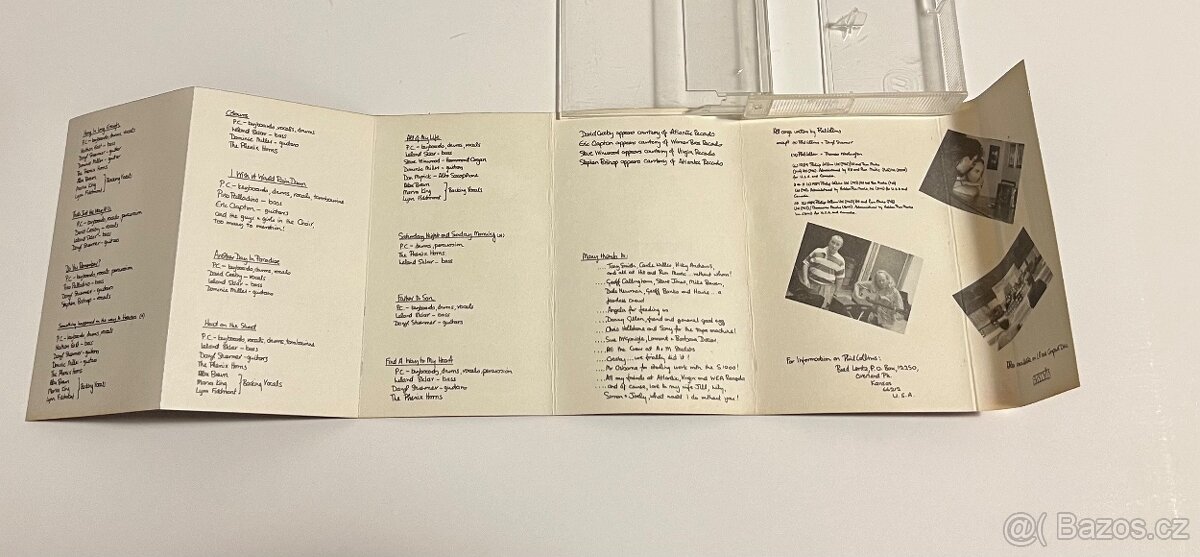 Hang In Long Enough
P.C. - keyboards, drums, vocals
Nathan East - bass
Daryl Stuermer - guitar
Dominic Miller - guitar
The Phenix Horns
Alex Brown
Marva King
Lynn Fiddmont
Backing Vocals
That's Just the Way It Is
P.C. - keyboards, drums, vocals, percussion
David Crosby - vocals
Leland Sklar - bass
Daryl Stuermer - guitars
Do You Remember?
P.C. - keyboards, drums, vocals, percussion
Pino Palladino - bass
Daryl Stuermer - guitars
Stephen Bishop - vocals
Something Happened on the way to Heaven
P.C. - keyboards, drums, vocals
Nathan East - bass
Daryl Stuermer - guitars
Dominic Miller - guitars
The Phenix Horns
Alex Brown
Marva King
Lynn Fiddmont
Backing Vocals
Colours
P.C. - keyboards, vocals, drums
Leland Sklar - bass
Dominic Miller - guitars
The Phenix Horns
I Wish It Would Rain Down
P.C. - keyboards, drums, vocals, tambourine
Pino Palladino - bass
Eric Clapton - guitars
and the guys & girls in the Choir,
too many to mention!
Another Day In Paradise
P.C. - keyboards, drums, vocals
David Crosby - vocals
Leland Sklar - bass
Dominic Miller - guitars
Heat on the Street
P.C. - keyboards, drums, vocals, tambourine
Leland Sklar - bass
Daryl Stuermer - guitars
The Phenix Horns
Alex Brown
Marva King
Lynn Fiddmont
Backing Vocals
All of My Life
P.C. - keyboards, drums, vocals
Leland Sklar - bass
Steve Winwood - Hammond Organ
Dominic Miller - guitars
Don Myrick - Alto Saxophone
Alex Brown
Marva King
Lynn Fiddmont
Backing Vocals
Saturday Night and Sunday Morning
P.C. - drums, percussion
The Phenix Horns
Leland Sklar - bass
Father to Son
P.C. - keyboards, drums, vocals
Leland Sklar - bass
Daryl Stuermer - guitars
Find A Way to My Heart
P.C. - keyboards, drums, vocals, percussion
Leland Sklar - bass
Daryl Stuermer - guitars
The Phenix Horns
David Crosby appears courtesy of Atlantic Records
Eric Clapton appears courtesy of Warner Bros Records
Steve Winwood appears courtesy of Virgin Records
Stephen Bishop appears courtesy of Atlantic Records
Many thanks to:
.... Tony Smith, Carole Willis, Hilary Andrews,
and all at Hit and Run Music ... without whom!
.... Geoff Callingham, Steve Jones, Mike Bowen,
Dale Newman, Geoff Banks and Howie .. a
fearless crew!
.... Angela for feeding us
.... Danny Gillen, friend and general good egg
.... Chris Hillebone and Sony for the tape machine!
.... Sue McGonigle, Lamont & Barbara Dozier,
.... All the Crew at A & M Studios
.... Crosby... we finally did it!
.... Air Osborne for starting work with the S.1000!
.... All my friends at Atlantic, Virgin and WEA Records
.... and of course, love to my wife Jill, Lily,
Simon & Joely, what would I do without you!
All songs written by Phil Collins
except Phil Collins - Daryl Stuermer
Phil Collins - Thomas Washington
For Information on Phil Collins:
Brad Lentz, P.O. Box, 12250,
Overland Pk.
Kansas
66212
U.S.A.
Also available on LP and Compact Disc
@( Bazos.cz